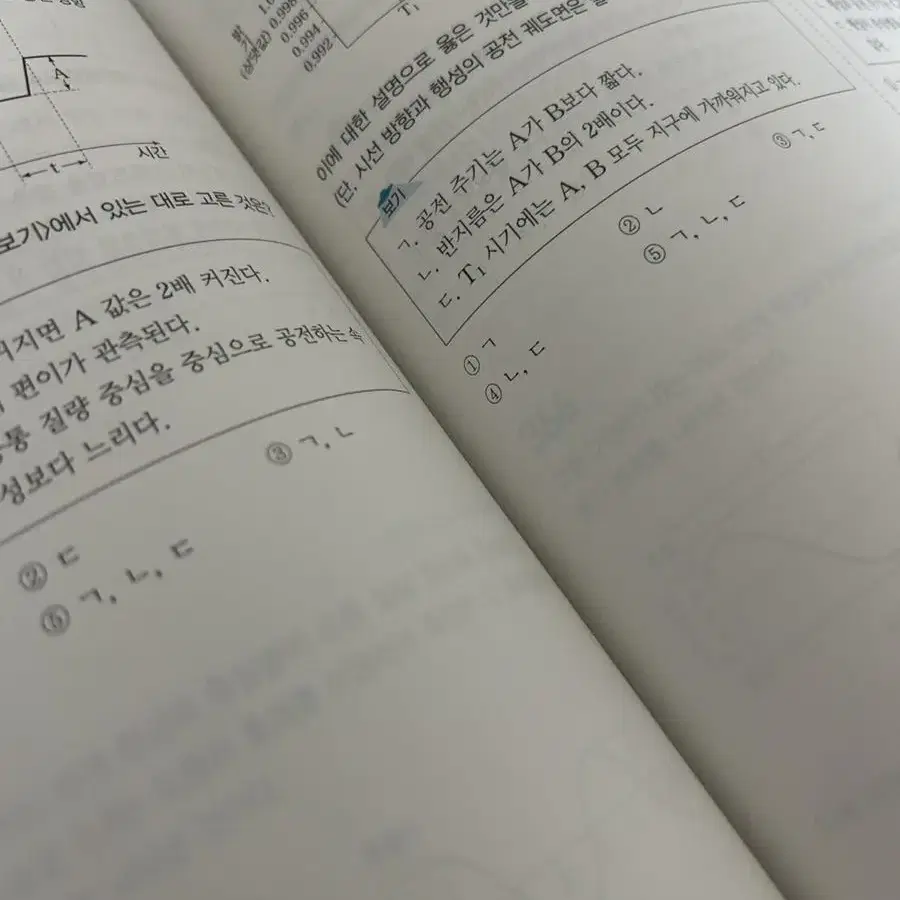 A
시간
t
보기>에서 있는 대로 고른 것은?
지면 A 값은 2배 커진다.
편이가 관측된다.
통 질량 중심을 중심으로 공전하는 속
성보다 느리다.
③ ㄱ, ㄴ
② ㄷ
⑤ ㄱ, ㄴ, ㄷ
밝
기
(상댓값)
0.998
0.996
0.994
0.992
T₁
이에 대한 설명으로 옳은 것만을
(단, 시선 방향과 행성의 공전 궤도면은
보기
ㄱ. 공전 주기는 A가 B보다 짧다.
ㄴ. 반지름은 A가 B의 2배이다.
ㄷ. T₁ 시기에는 A, B 모두 지구에 가까워지고 있다.
① ㄱ
② ㄴ
③ ㄱ, ㄷ
④ ㄴ, ㄷ
⑤ ㄱ, ㄴ, ㄷ